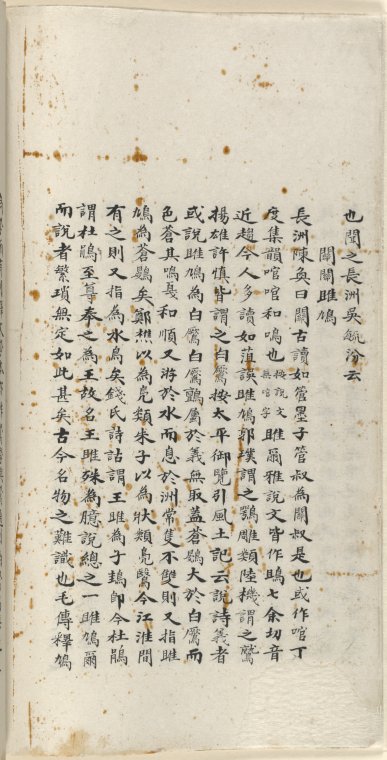 也聞之長洲吳毓汾云
關關雎鳩
長洲陳奐曰關古讀如管墨子管叔為關叔是也或作喧丁
度集韻喧喧和鳴也按說文無喧字雎爾雅說文皆作鴡七余切音
近趨今人多讀如菹誤雎鳩郭璞謂之鶚雕類陸機謂之鷲
揚雄許慎皆謂之白鷢按太平御覽引風土記云說詩義者
或說雎鳩為白鷢白鷢鷂屬於義無取蓋蒼鷃大於白鷢而
色蒼其鳴戛和順又游於水而息於洲常隻不雙則又指雎
鳩為蒼鷃矣鄭樵以為鳧類朱子以為狀類鳧鷖今江淮間
有之則又指為水鳥矣錢氏詩詁謂王雎為子鴂即今杜鵑
謂杜鵑至蜀奉之為王故名王雎殊為臆說總之一雎鳩爾
而說者繁瑣無定如此甚矣古今名物之難識也毛傳釋鳩